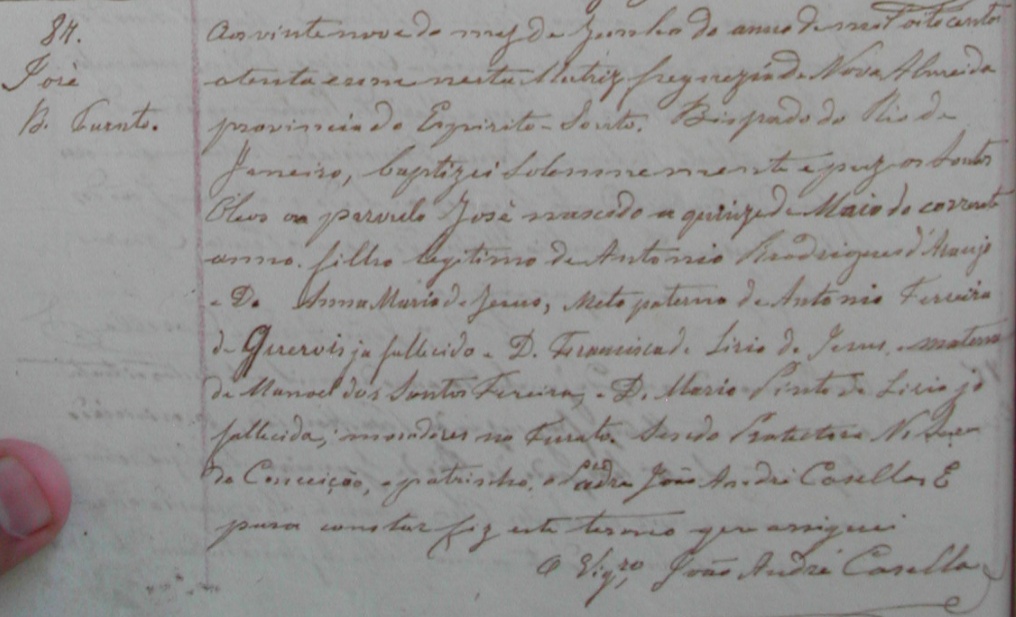 84.
José
B. Fundo.
Aos vinte nove do mez de Junho do anno de mil oito centos
oitenta e um nesta Matriz, freguezia de Nova Almeida
provincia do Espirito-Santo. Bispado do Rio de
Janeiro, baptizei Solemnemente e puz os Santos
Óleos ao parvulo José nascido a quinze de Maio do corrente
anno. filho legitimo de Antonio Rodrigues d'Araujo
e D. Anna Maria de Jesus, Neto paterno de Antonio Ferreira
de já fallecido e D. Francisca de Lirio de Jesus, e materno
de Manoel dos Santos Ferreira, e D. Maria Pinto de Lirio já
fallecida, moradores no Fundo. Sendo Protectora N. Senra
da Conceição, e padrinho, o Padre João André Casella. E
para constar fiz este termo que assignei
O Vigro João André Casella